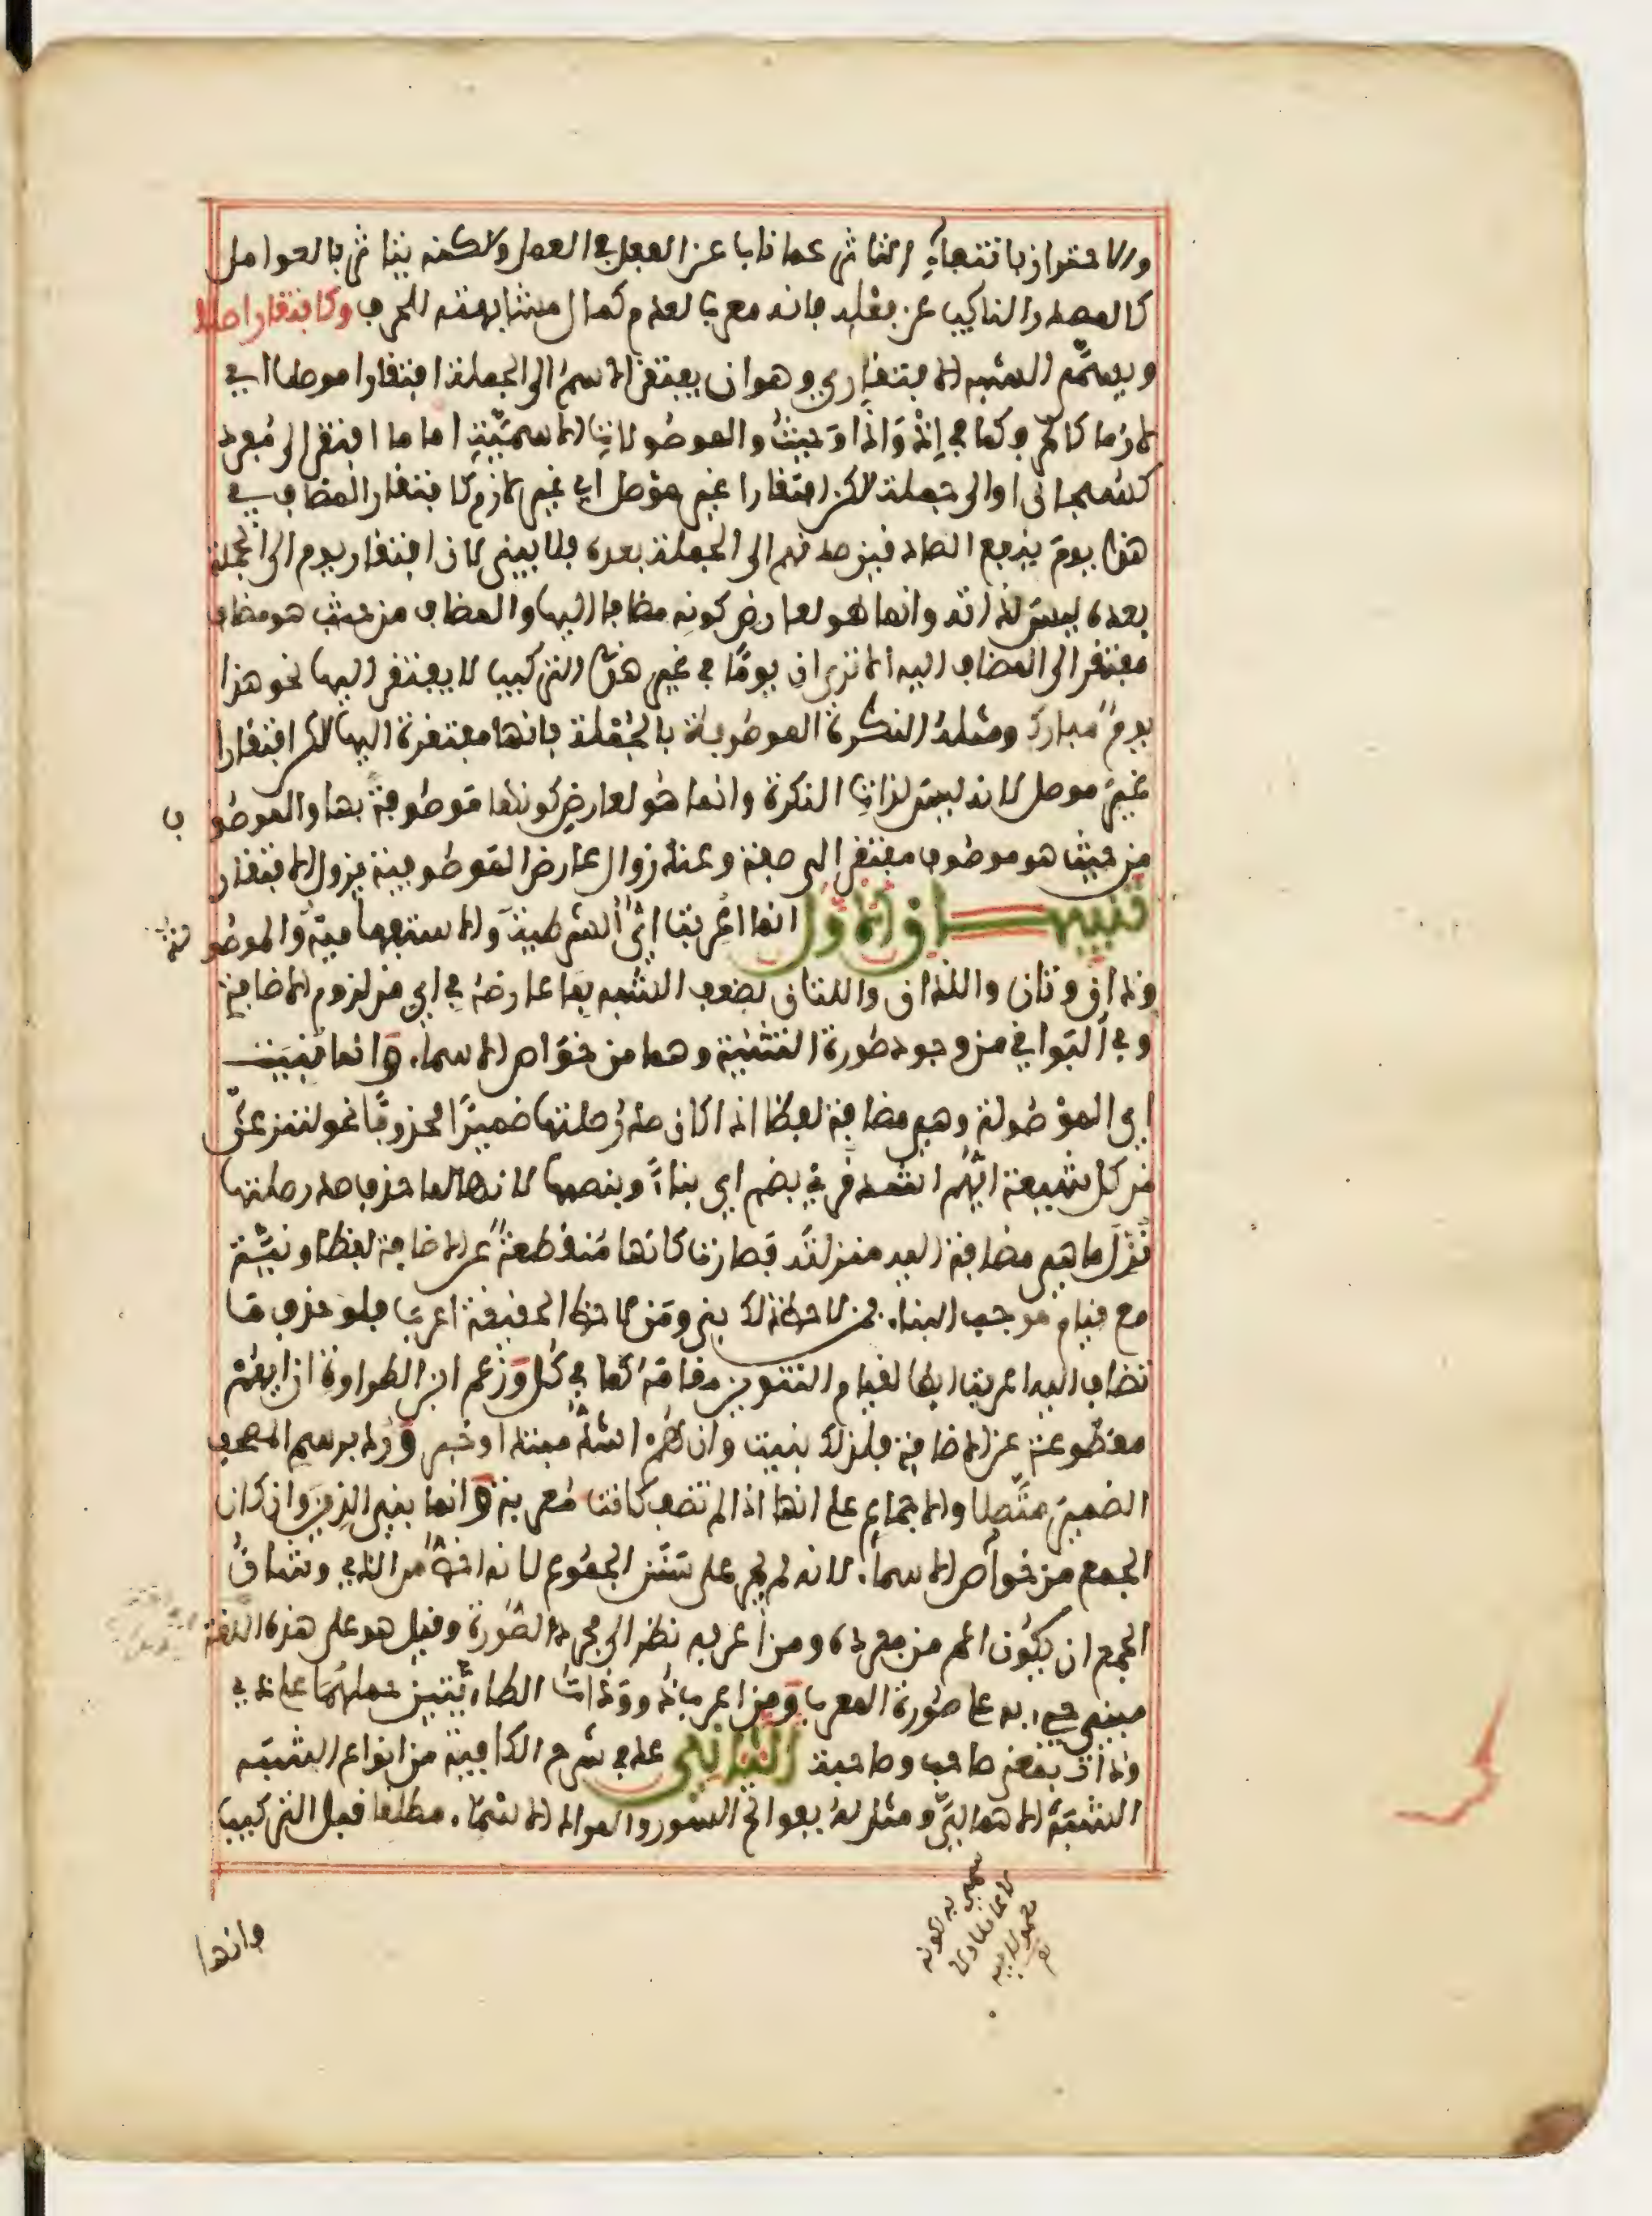 والاحتراز بانتفاء التاثر عما ناب عن الفعل في العمل ولاكنه يتاثر بالعوامل
كالمصدر النائب عن فعله فانه معرب لعدم كمال مشابهته للحرف وكافتقار اصلا
ويسمى الشبه الافتقاري وهو ان يفتقر الاسم الى الجملة افتقارا موصلا اي
لازما كالحرف كما في اذ واذا وحيث والموصولات الاسمية اما ما افتقر الى مفرد
كسبحان او الى جملة لاكن افتقارا غير موصل اي غير لازم كافتقار المضاف في
هذا يوم ينفع الصادقين صدقهم الى الجملة بعده فلا يبنى لان افتقار يوم الى الجملة
بعده ليس لذاته وانما هو لعارض كونه مضافا اليها والمضاف من حيث هو مضاف
مفتقر الى المضاف اليه الا ترى ان يوما في غير هذا التركيب لا يفتقر اليها نحو هذا
يوم مبارك ومثله النكرة الموصوفة بالجملة فانها مفتقرة اليها لاكن افتقارا
غير موصل لانه ليس لذات النكرة وانما هو لعارض كونها موصوفة بها والموصوف
من حيث هو موصوف مفتقر الى صفة وعند زوال عارض الموصوفية يزول الافتقار
تنبيهان الاول انما اعربت اي الشرطية والاستفهامية والموصولة
وذان وتان واللذان واللتان لضعف الشبه بما عارضه في اي من لزوم الاضافة
وفي البواقي من وجود صورة التثنية وهما من خواص الاسماء وانما بنيت
اي الموصولة وهي مضافة لفظا اذا كان صدر صلتها ضميرا محذوفا نحو لننزعن
من كل شيعة ايهم اشد قرئ بضم اي بناء وبنصبها لانها لما حذف صدر صلتها
نزل ما هي مضافة اليه منزلته فصارت كانها منقطعة عن الاضافة لفظا ونية
مع قيام موجب البناء فمن لاحظ ذلك بنى ومن لاحظ الحقيقة اعرب فلو حذف ما
تضاف اليه اعربت ايضا لقيام التنوين مقامه كما في كل وزعم ابن الطراوة ان ايهم
مقطوعة عن الاضافة فلذلك بنيت وان هم اشد مبتدا وخبر ورد برسم المصحف
الضمير متصلا والاجماع على انها اذا لم تضف كانت معربة وانما بني الذين وان كان
الجمع من خواص الاسماء لانه لم يجر على سنن الجموع لانه اخص من الذي وشان
الجمع ان يكون اعم من مفرده ومن اعربه نظر الى مجرد الصورة وقيل هو على هذه اللغة
مبني جيء به على صورة المعرب ومن اعرب ذو وذات الطائيتين حملهما على ذي
وذات بمعنى صاحب وصاحبة الثاني عد في شرح الكافية من انواع الشبه
الشبه الاهمالي ومثل له بفواتح السور والمراد الاسماء مطلقا قبل التركيب
وانها